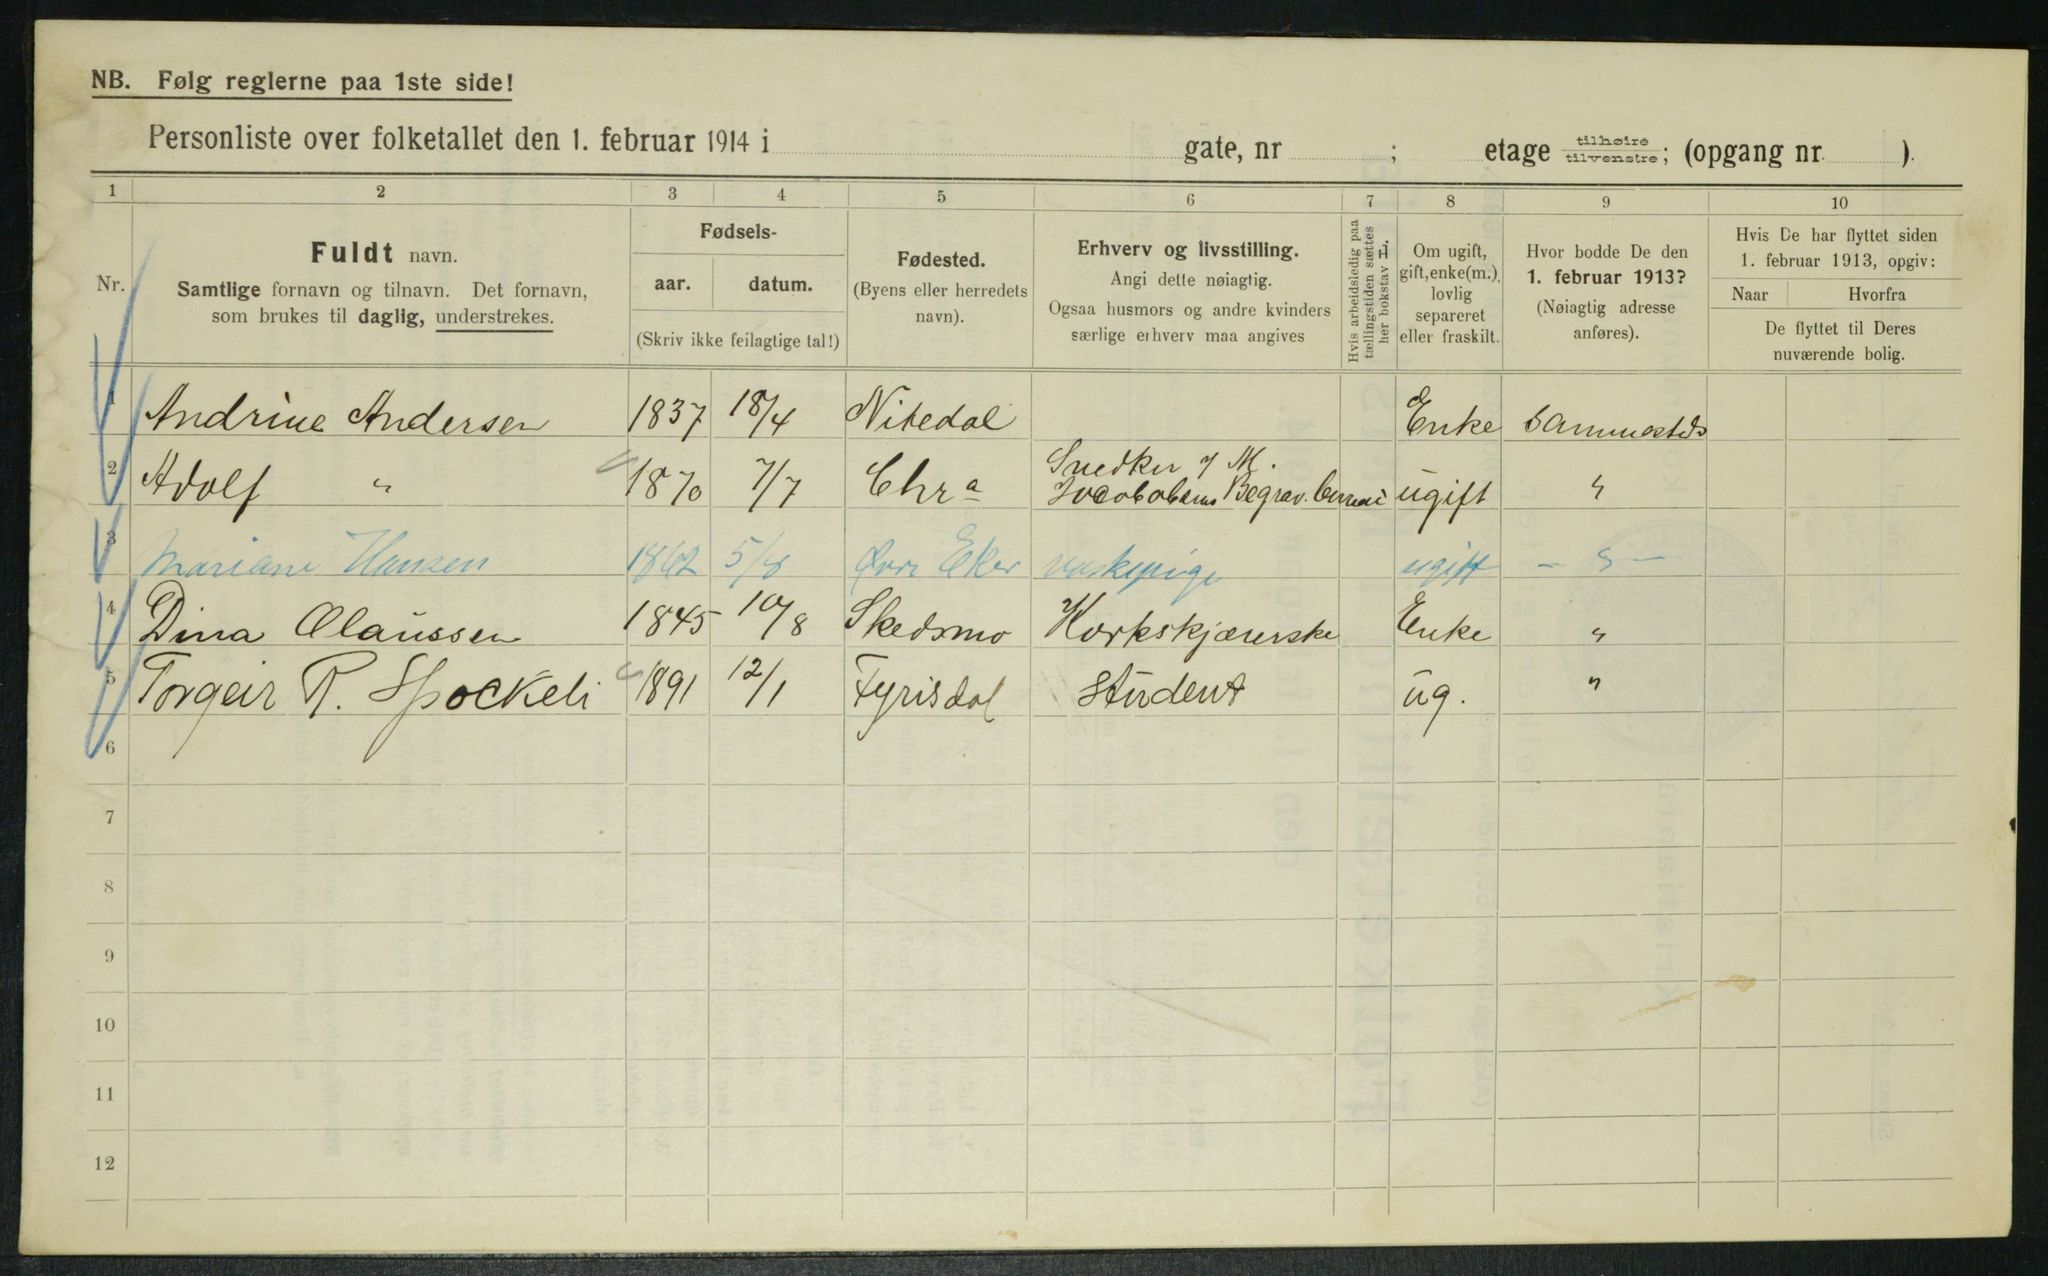 NB. Følg reglerne paa 1ste side!
Personliste over folketallet den 1. februar 1914 i gate, nr ; etage tilhøire tilvenstre; (opgang nr. ).
1 2 3 4 5 6 7 8 9 10
Nr.
Fuldt navn.
Samtlige fornavn og tilnavn. Det fornavn,
som brukes til daglig, understrekes.
Fødsels-
aar. datum.
(Skriv ikke feilagtige tal!)
Fødested.
(Byens eller herredets
navn).
Erhverv og livsstilling.
Angi dette nøiagtig.
Ogsaa husmors og andre kvinders
særlige erhverv maa angives
Hvis arbeidsledig paa
tællingstiden sættes
her bokstav L.
Om ugift,
gift, enke(m.),
lovlig
separeret
eller fraskilt.
Hvor bodde De den
1. februar 1913?
(Nøiagtig adresse
anføres).
Hvis De har flyttet siden
1. februar 1913, opgiv:
Naar Hvorfra
De flyttet til Deres
nuværende bolig.
1 Andrine Andersen 1837 18/4 Nitedal Enke Sammesteds
2 Adolf " 1870 7/7 Chra Snedker J M.
Jacobsens Begrav. ugift "
3 Mariane Hansen 1862 5/8 Øvre Eker vaskepige ugift - " -
4 Dina Olaussen 1845 10/8 Skedsmo Korkskjærerske Enke "
5 Torgeir R. Spockeli 1891 12/1 Fyrisdal Student ug. "
6
7
8
9
10
11
12